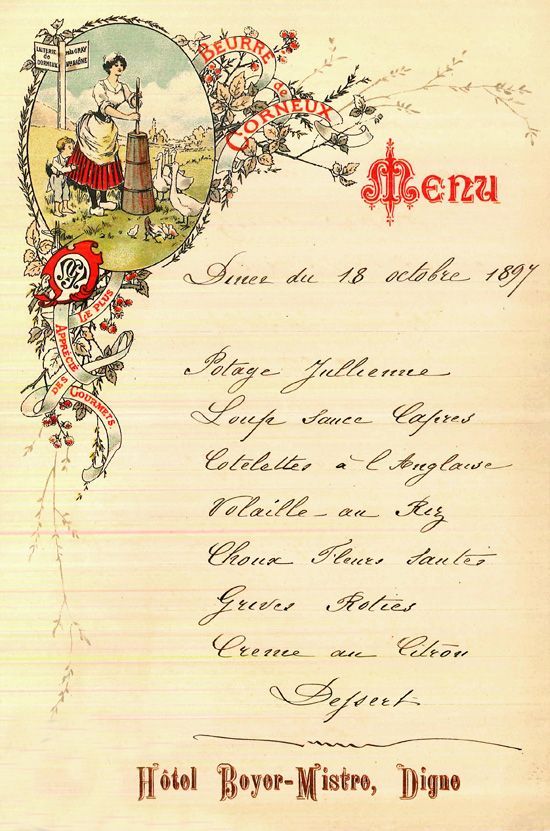 LAITERIE
DE
CORNEUX
PRÈS GRAY
Hte SAÔNE
BEURRE
de
CORNEUX
MENU
Diner du 18 octobre 1897
LE PLUS
APPRÉCIÉ
DES GOURMETS
Potage Jullienne
Loup sauce Capres
Cotelettes à l'Anglaise
Volaille au Riz
Choux Fleurs Sautés
Grives Roties
Creme au Citron
Dessert
Hôtel Boyer-Mistre, Digne